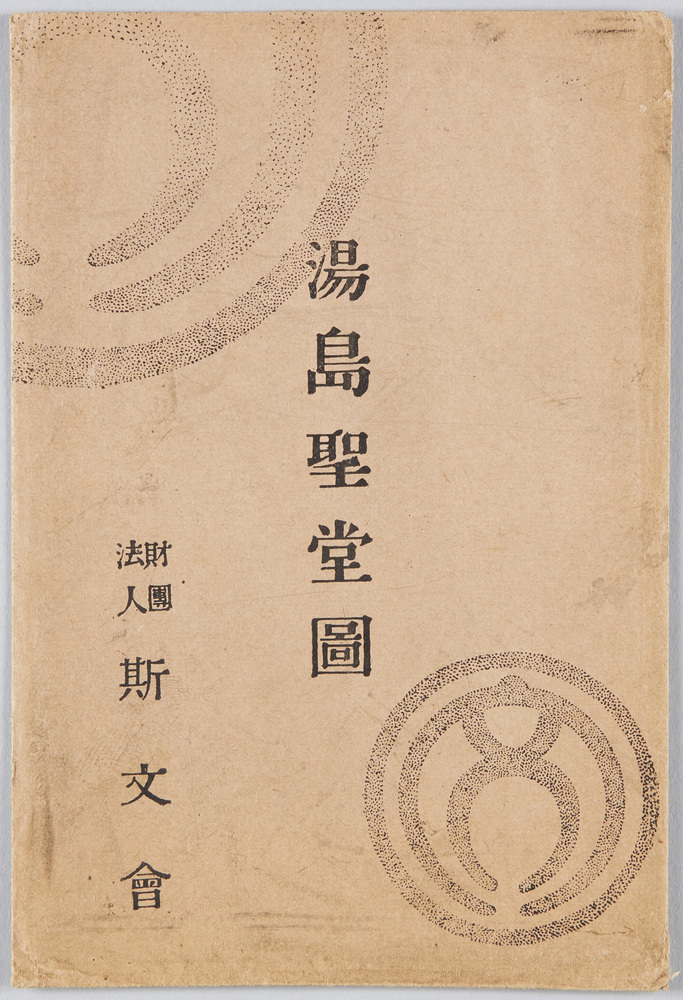 湯島聖堂圖
財團法人 斯文會